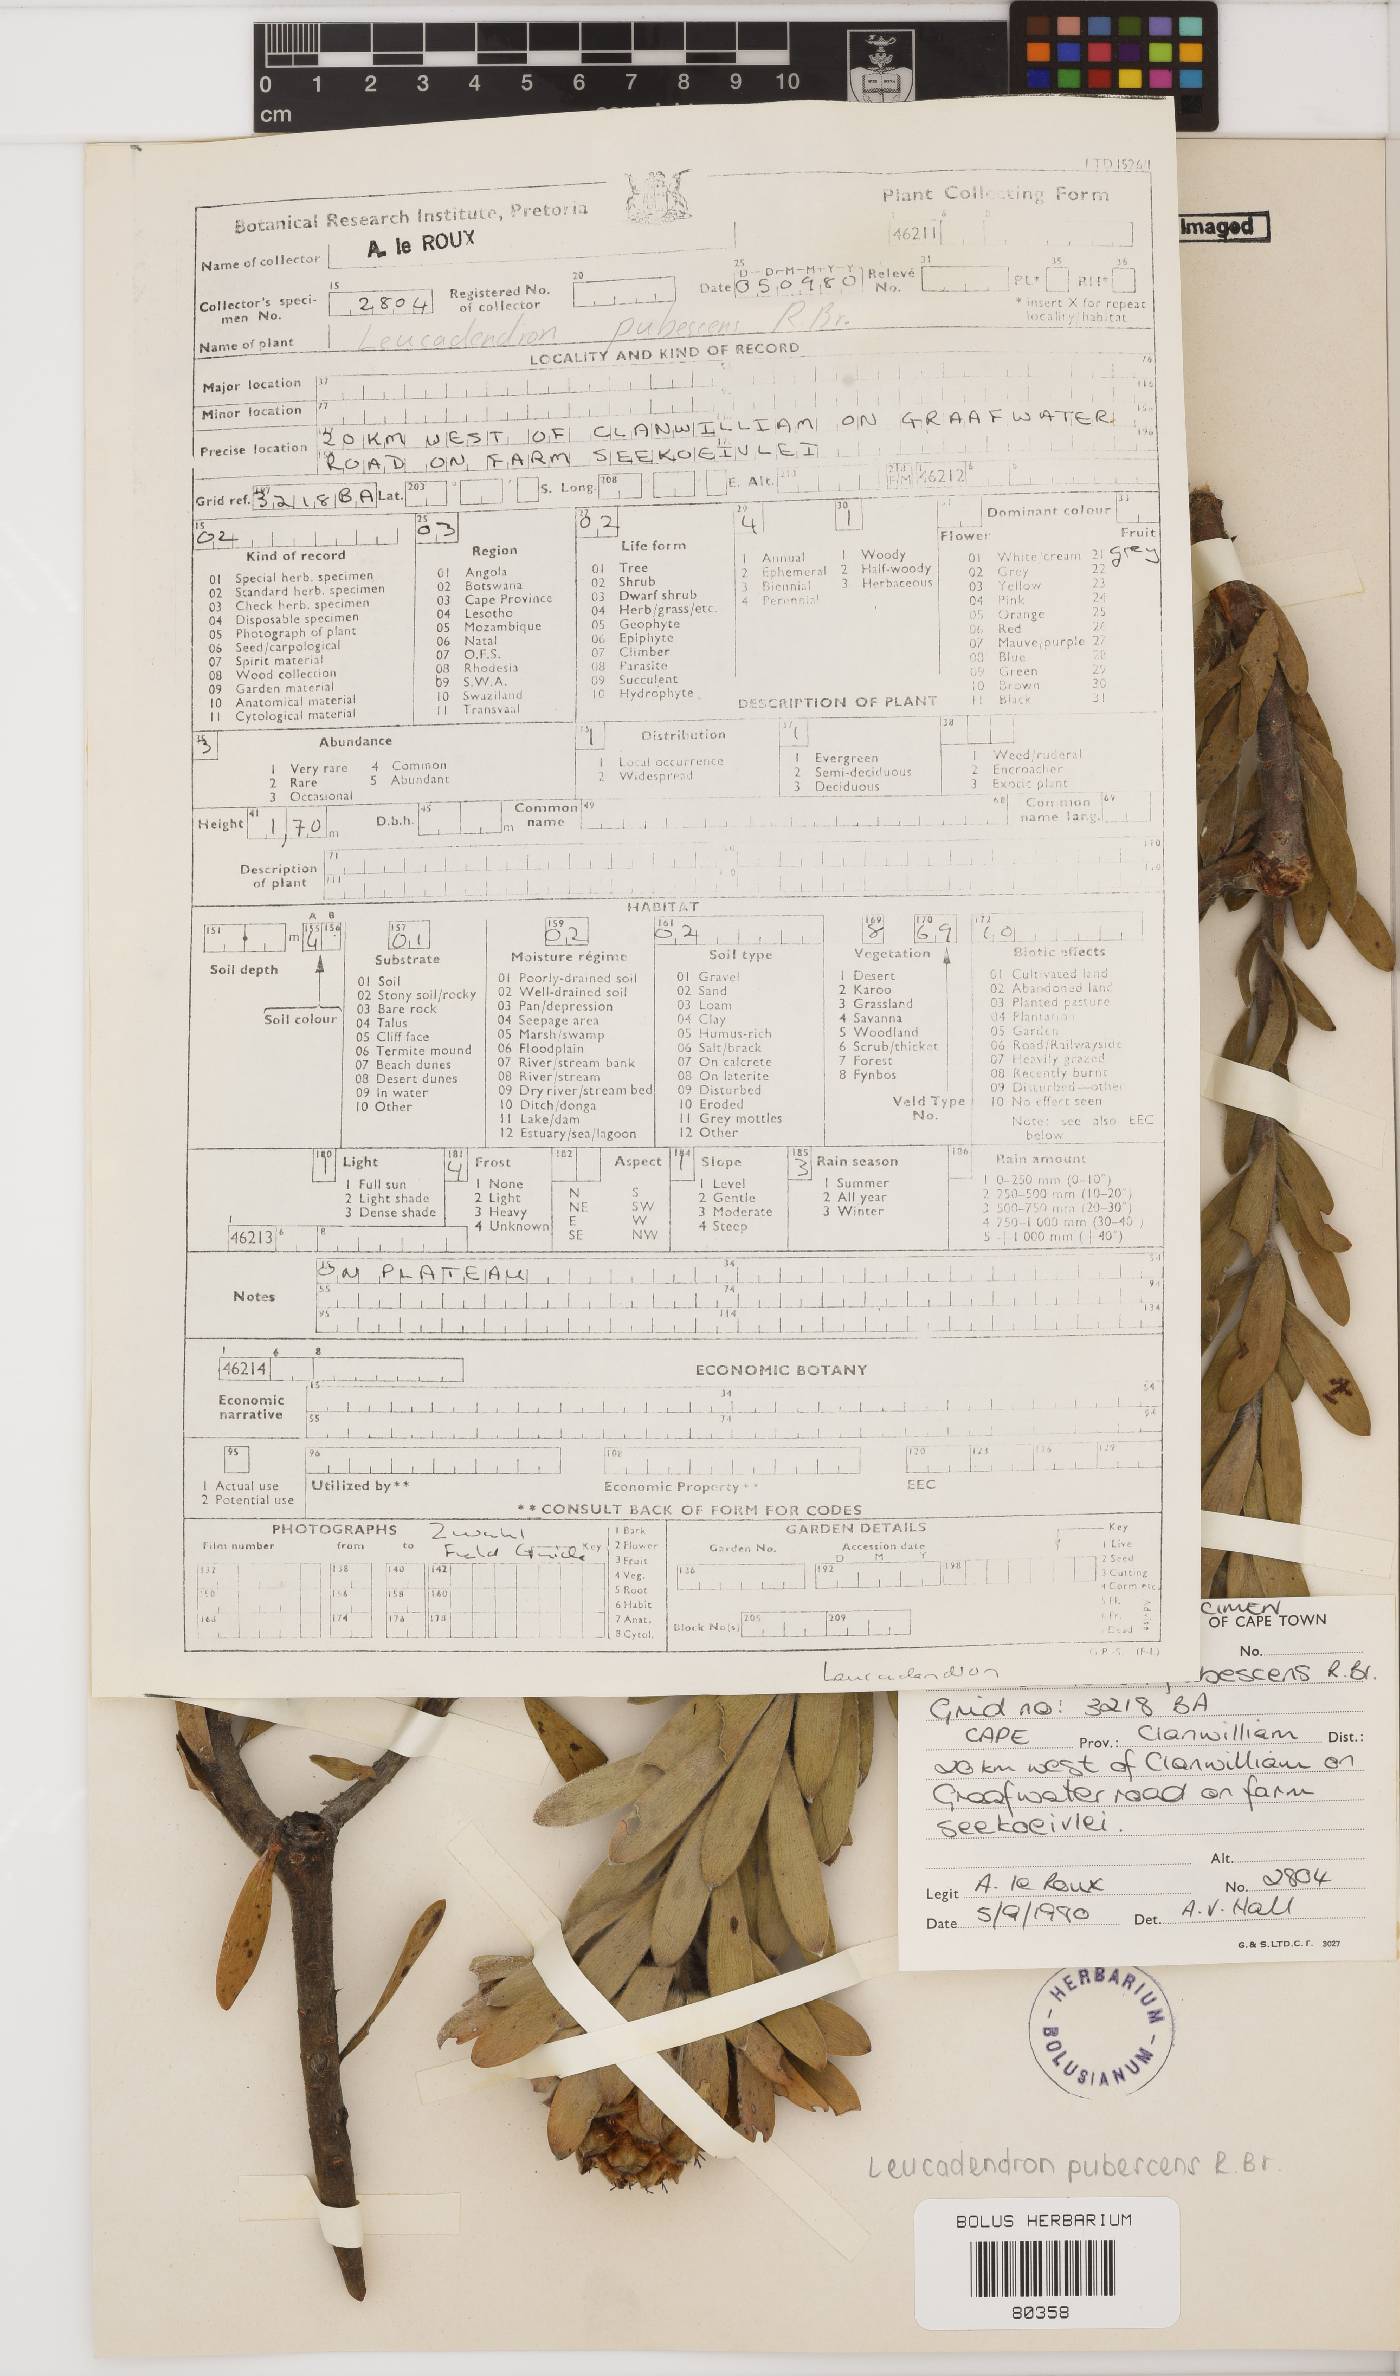 0 1 2 3 4 5 6 7 8 9 10
cm
Imaged
Botanical Research Institute, Pretoria
Plant Collecting Form
46211
Name of collector A. le ROUX
Collector's speci-
men No. 2804
Registered No.
of collector
Date 050980
D-D-M-M-Y-Y
Relevé
No.
* insert X for repeat
locality/habitat
Name of plant Leucadendron pubescens R.Br.
LOCALITY AND KIND OF RECORD
Major location
Minor location
Precise location 20 KM WEST OF CLANWILLIAM ON GRAAFWATER
ROAD ON FARM SEEKOEIVLEI
Grid ref. 3218BA Lat. S. Long. E. Alt. 46212
02
Kind of record
01 Special herb. specimen
02 Standard herb. specimen
03 Check herb. specimen
04 Disposable specimen
05 Photograph of plant
06 Seed/carpological
07 Spirit material
08 Wood collection
09 Garden material
10 Anatomical material
11 Cytological material
03
Region
01 Angola
02 Botswana
03 Cape Province
04 Lesotho
05 Mozambique
06 Natal
07 O.F.S.
08 Rhodesia
09 S.W.A.
10 Swaziland
11 Transvaal
02
Life form
01 Tree
02 Shrub
03 Dwarf shrub
04 Herb/grass/etc.
05 Geophyte
06 Epiphyte
07 Climber
08 Parasite
09 Succulent
10 Hydrophyte
4
1 Annual
2 Ephemeral
3 Biennial
4 Perennial
1
1 Woody
2 Half-woody
3 Herbaceous
Dominant colour
Flower Fruit
grey
01 White/cream 21
02 Grey 22
03 Yellow 23
04 Pink 24
05 Orange 25
06 Red 26
07 Mauve/purple 27
08 Blue 28
09 Green 29
10 Brown 30
11 Black 31
DESCRIPTION OF PLANT
3
Abundance
1 Very rare 4 Common
2 Rare 5 Abundant
3 Occasional
1 Distribution
1 Local occurrence
2 Widespread
1
1 Evergreen
2 Semi-deciduous
3 Deciduous
1 Weed/ruderal
2 Encroacher
3 Exotic plant
Height 1,70 m D.b.h. m Common
name
Common
name lang.
Description
of plant
HABITAT
m 4
Soil depth
Soil colour
01
Substrate
01 Soil
02 Stony soil/rocky
03 Bare rock
04 Talus
05 Cliff face
06 Termite mound
07 Beach dunes
08 Desert dunes
09 In water
10 Other
02
Moisture régime
01 Poorly-drained soil
02 Well-drained soil
03 Pan/depression
04 Seepage area
05 Marsh/swamp
06 Floodplain
07 River/stream bank
08 River/stream
09 Dry river/stream bed
10 Ditch/donga
11 Lake/dam
12 Estuary/sea/lagoon
02
Soil type
01 Gravel
02 Sand
03 Loam
04 Clay
05 Humus-rich
06 Salt/brack
07 On calcrete
08 On laterite
09 Disturbed
10 Eroded
11 Grey mottles
12 Other
8 69
Vegetation
1 Desert
2 Karoo
3 Grassland
4 Savanna
5 Woodland
6 Scrub/thicket
7 Forest
8 Fynbos
Veld Type
No.
10
Biotic effects
01 Cultivated land
02 Abandoned land
03 Planted pasture
04 Plantation
05 Garden
06 Road/Railwayside
07 Heavily grazed
08 Recently burnt
09 Disturbed—other
10 No effect seen
Note: see also EEC
below
1 Light
1 Full sun
2 Light shade
3 Dense shade
4 Frost
1 None
2 Light
3 Heavy
4 Unknown
Aspect
N S
NE SW
E W
SE NW
1 Slope
1 Level
2 Gentle
3 Moderate
4 Steep
3 Rain season
1 Summer
2 All year
3 Winter
Rain amount
1 0–250 mm (0–10")
2 250–500 mm (10–20")
3 500–750 mm (20–30")
4 750–1 000 mm (30–40")
5 +1 000 mm (+40")
46213
Notes ON PLATEAU
46214
ECONOMIC BOTANY
Economic
narrative
1 Actual use
2 Potential use
Utilized by**
Economic Property**
EEC
** CONSULT BACK OF FORM FOR CODES
PHOTOGRAPHS
Film number from to Key
Field Guide
1 Bark
2 Flower
3 Fruit
4 Veg.
5 Root
6 Habit
7 Anat.
8 Cytol.
GARDEN DETAILS
Garden No. Accession date
D M Y
Block No(s)
Key
1 Live
2 Seed
3 Cutting
4 Corm etc.
Leucadendron
CIMEN
OF CAPE TOWN
No.
bescens R.Br.
Grid no: 3218 BA
CAPE Prov.: Clanwilliam Dist.:
20 km west of Clanwilliam on
Graafwater road on farm
seekoeivlei.
Alt.
Legit A. le Roux No. 2804
Date 5/9/1980 Det. A.V. Hall
G. & S. LTD. C.T. 3027
HERBARIUM
BOLUSIANUM
Leucadendron pubescens R.Br.
BOLUS HERBARIUM
80358